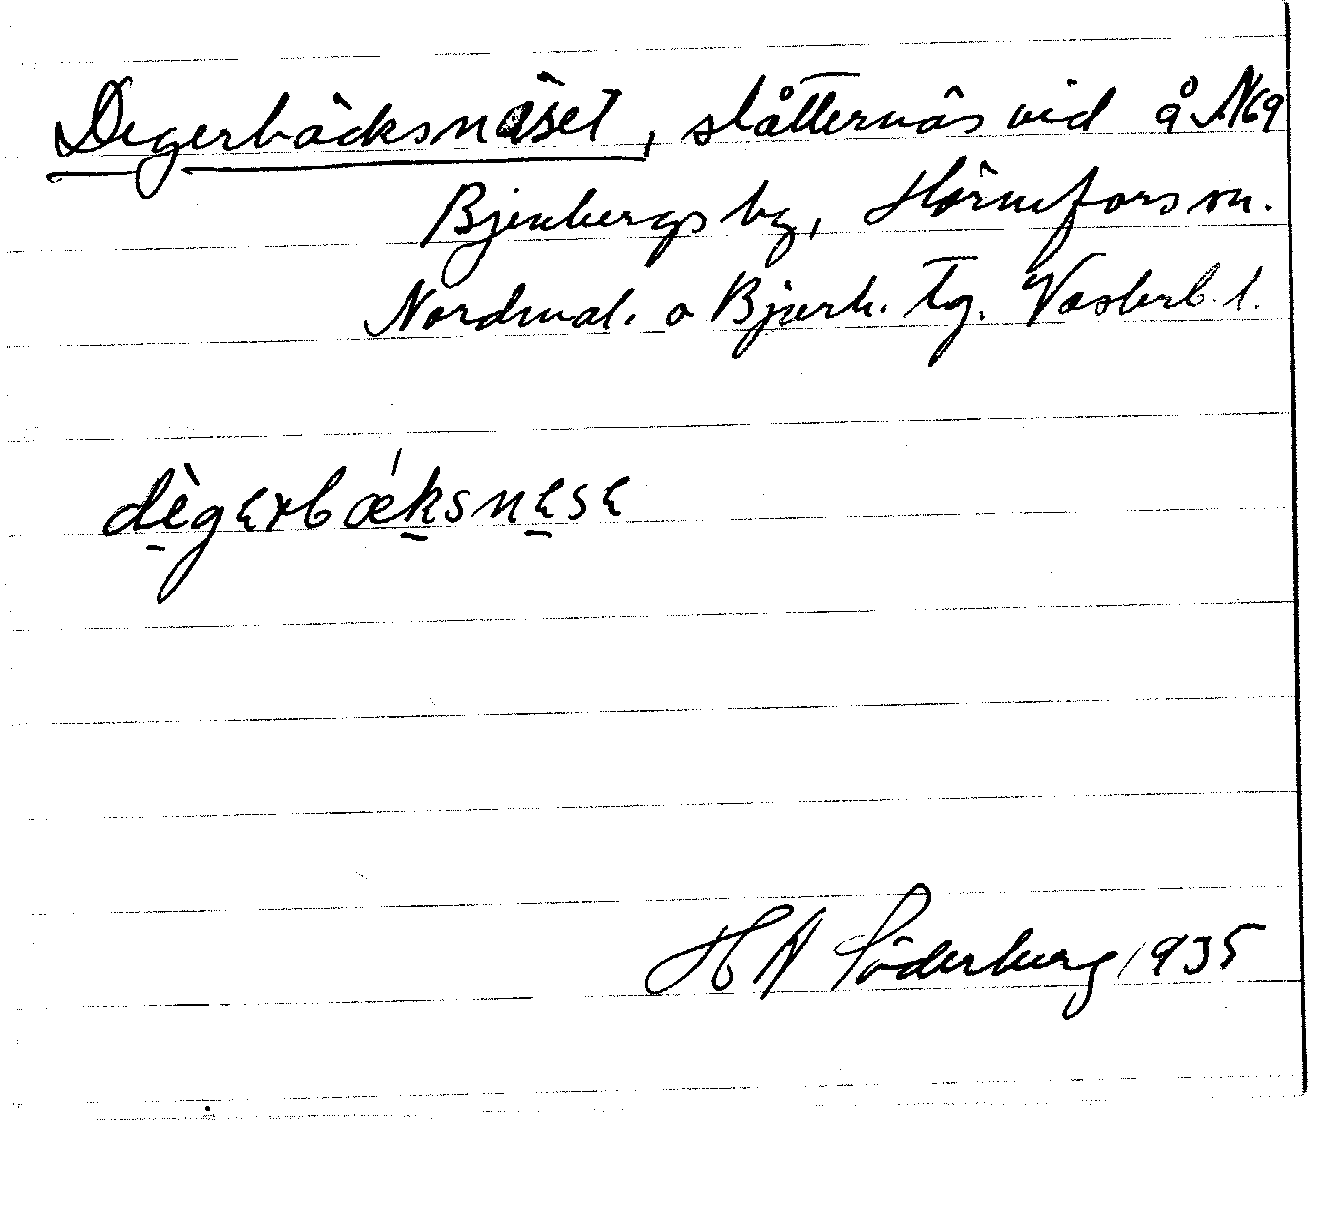 Degerbäcksnäset, slåtternäs vid å N69
Bjenbergs by, Hörnefors sn.
Nordmal. o Bjurh. Tg. Västerb. l.
dègɛrbǽksnɛsɛ
H A Söderberg 1935